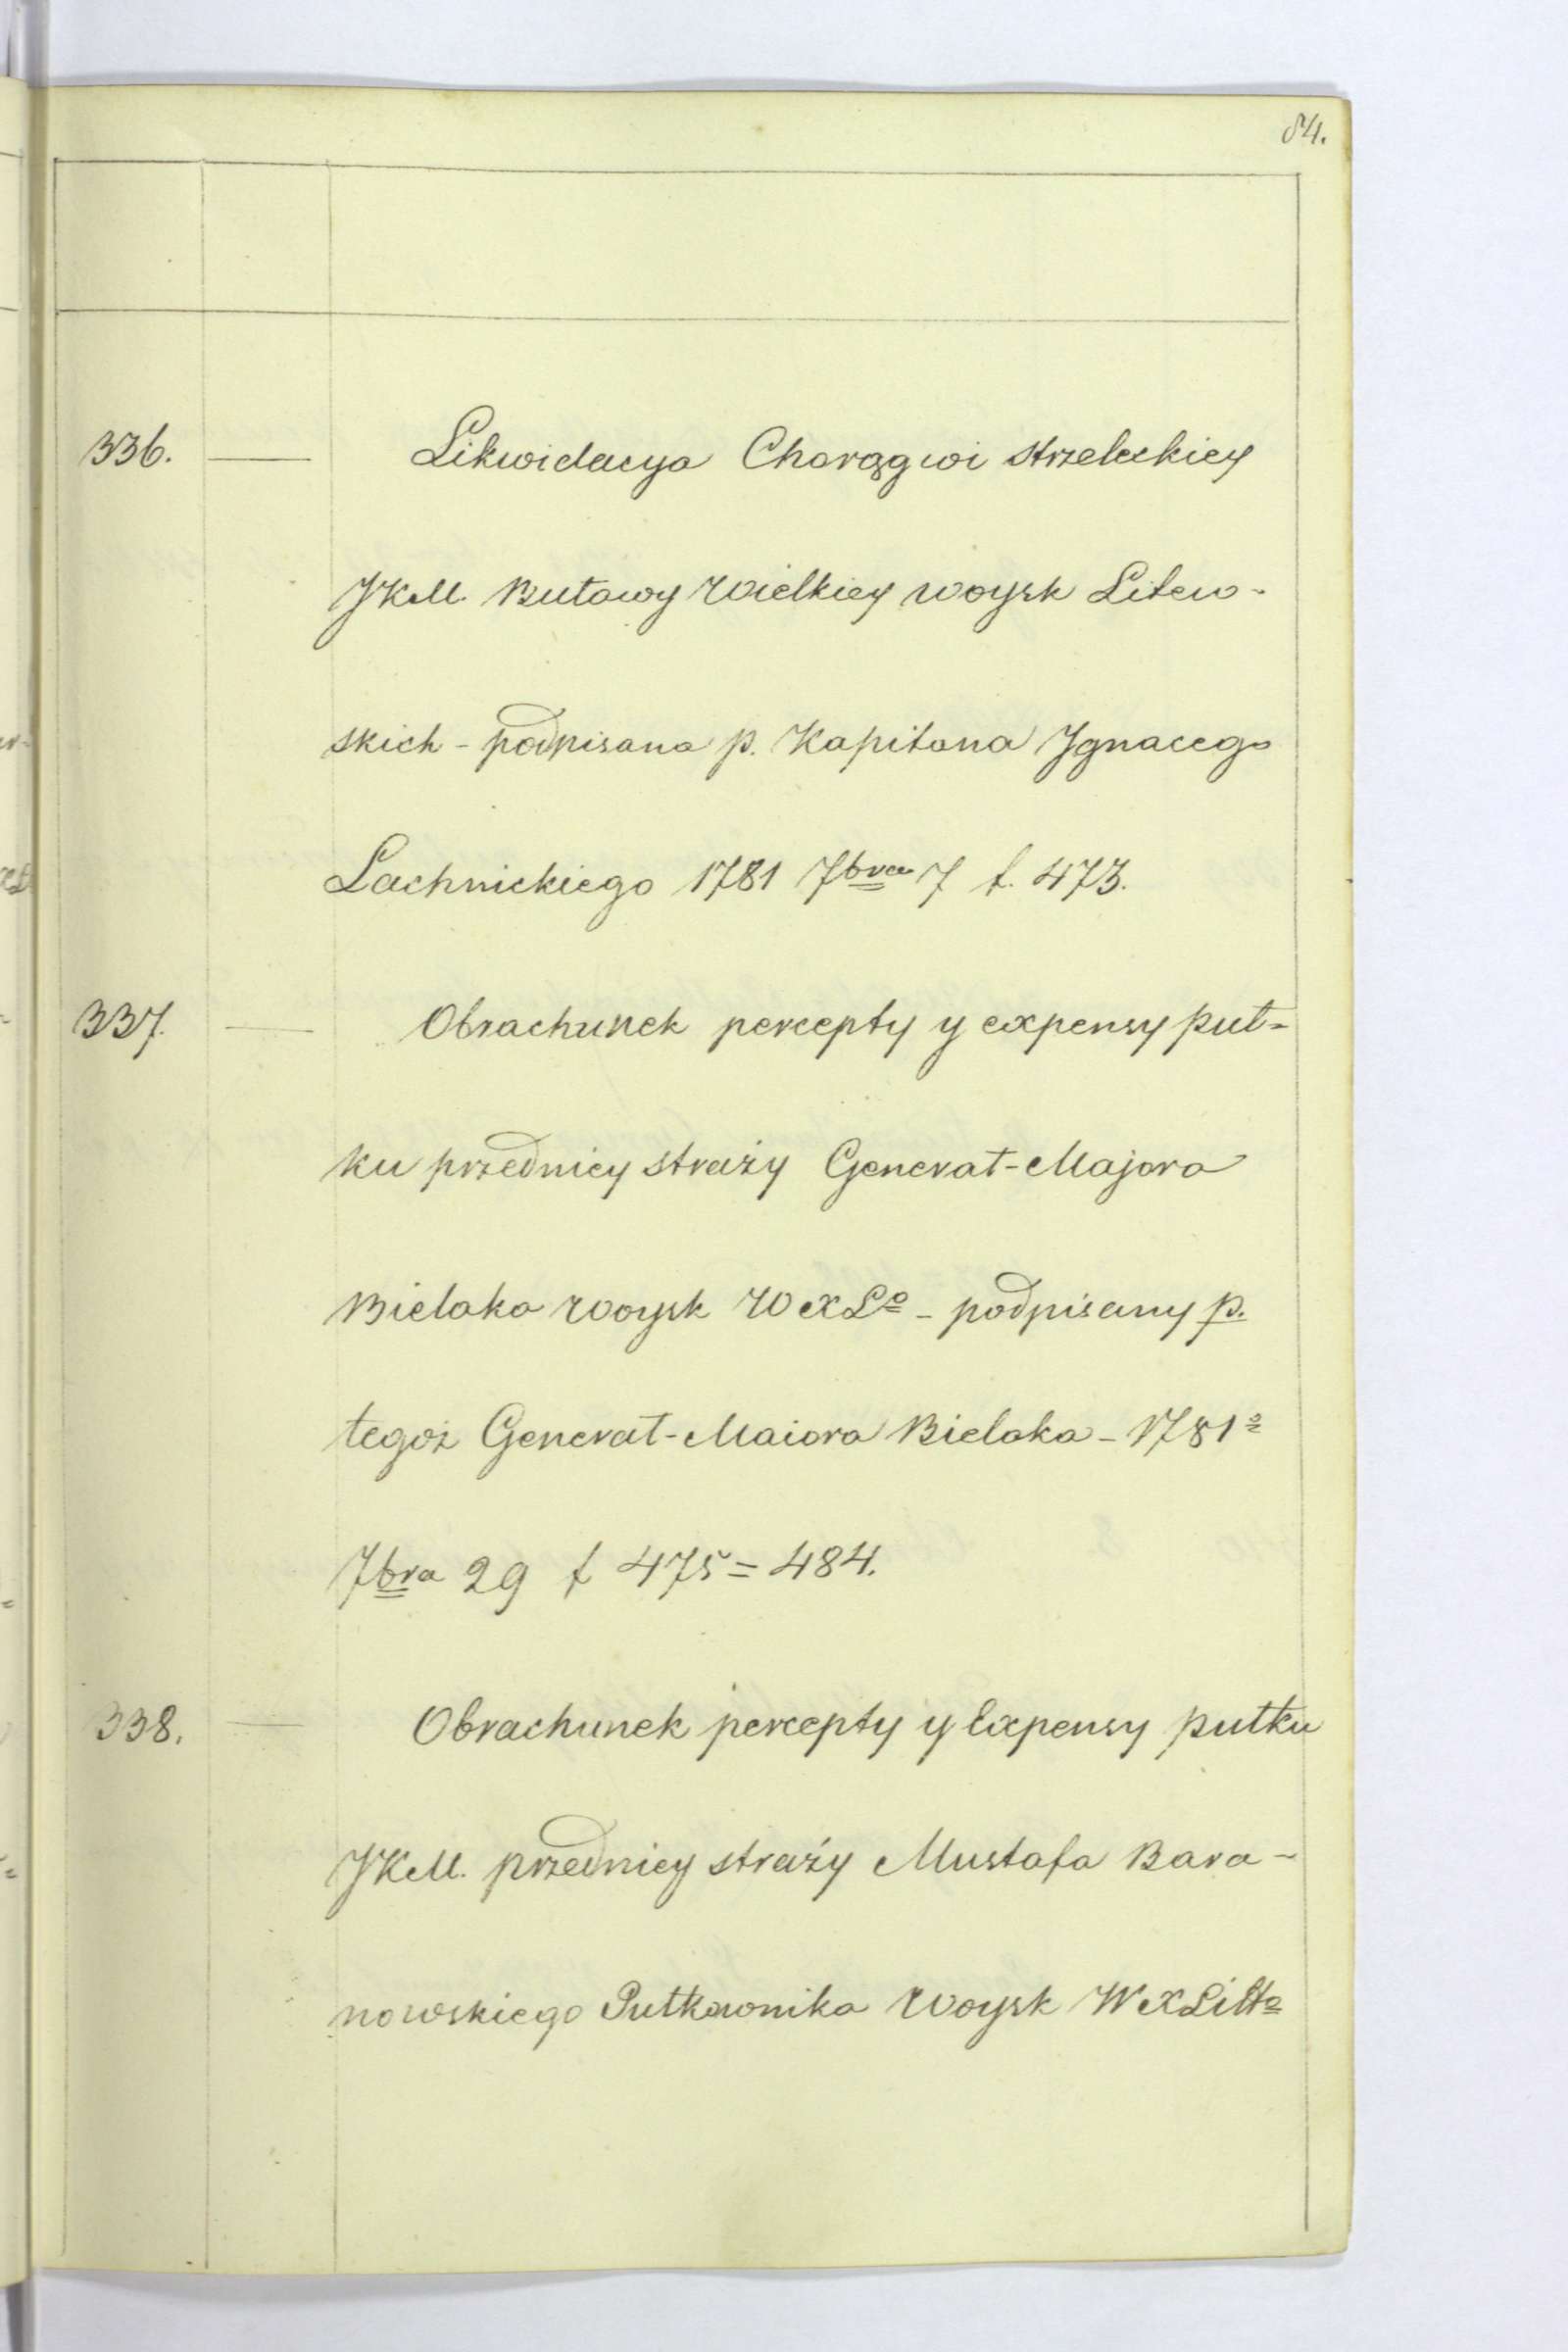 84.
336. — Likwidacya Chorągwi strzeleckiey
JKM. Buławy Wielkiey woysk Litew-
skich - podpisana p. Kapitana Jgnacego
Lachnickiego 1781 7bra 7 f. 473.
337. — Obrachunek percepty y expensy puł=
ku przedniey straży Generał-Majora
Bielaka woysk WXLo - podpisany p.
tegoż Generał-Maiora Bielaka - 1781o
7bra 29 f 475=484.
338. — Obrachunek percepty y Expensy pułku
JKM. przedniey straży Mustafa Bara-
nowskiego Pułkownika Woysk WXLitto